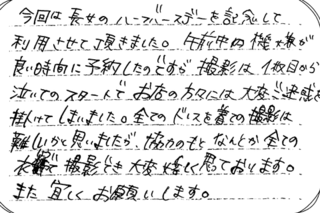 今回は長女のハーフバースデーを記念して
利用させて頂きました。午前中内機嫌が
良い時間に予約したのですが撮影は1枚目から
泣いてのスタートでお店の方々には大変ご迷惑を
掛けてしまいました。全てのドレスを着ての撮影は
難しいかと思いましたが、協力のもとなんとか全ての
衣装で撮影でき大変嬉しく思っております。
また宜しくお願いします。